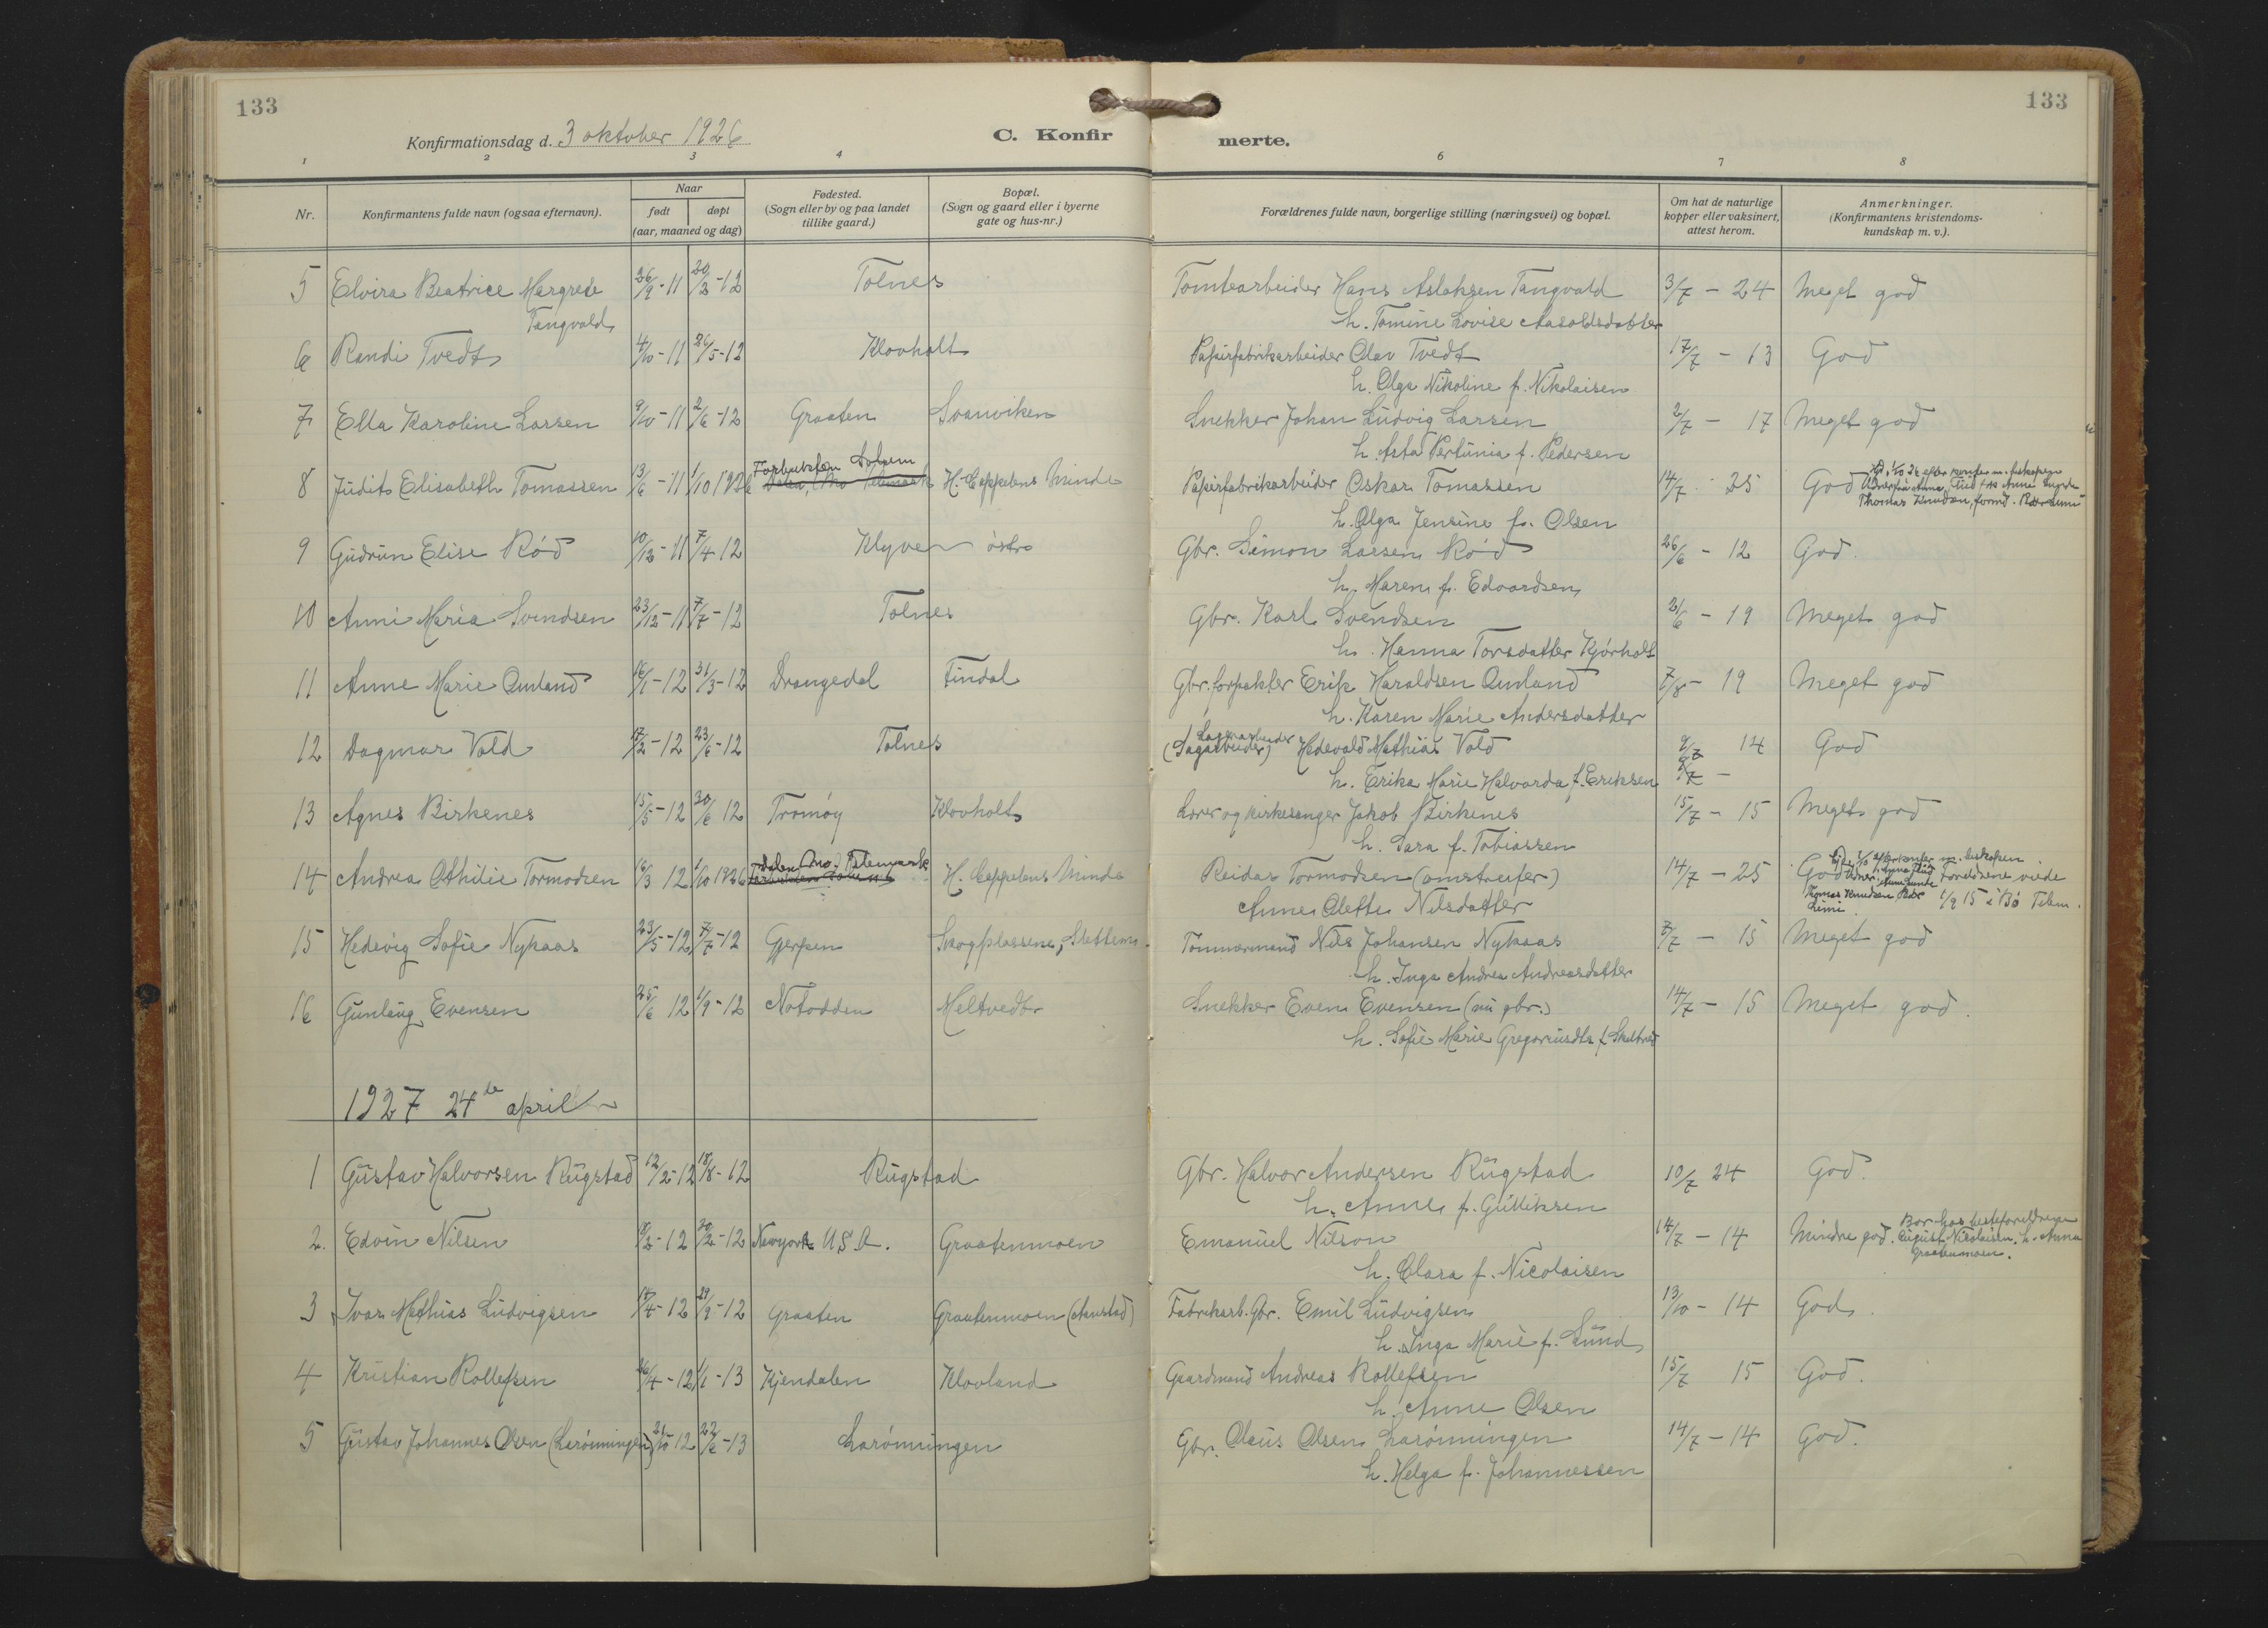 133
133
Konfirmationsdag d. 3 oktober 1926
C. Konfir
merte.
1 2 3 4 6 7 8
Nr.
Konfirmantens fulde navn (ogsaa efternavn).
Naar
født døpt
(aar, maaned og dag)
Fødested.
(Sogn eller by og paa landet
tillike gaard.)
Bopæl.
(Sogn og gaard eller i byerne
gate og hus-nr.)
Forældrenes fulde navn, borgerlige stilling (næringsvei) og bopæl.
Om hat de naturlige
kopper eller vaksinert,
attest herom.
Anmerkninger.
(Konfirmantens kristendoms-
kundskap m. v.).
5 Elvira Beatrice Margrete 26/9-11 Tolnes Tomtearbeider Hans Aslaksen Tangvald 3/7 - 24 Meget god
Tangvald h. Tomine Lovise Aasoldsdatter
6 Randi Tvedt 4/10-11 26/5-12 Klovholt Papirfabrikarbeider Olav Tvedt 17/7 - 13 God
h. Olga Nikoline f. Nikolaisen
7 Ella Karoline Larsen 9/10-11 2/6-12 Graaten Svanviken Snekker Johan Ludvig Larsen 2/7 - 17 Meget god
h. Asta Pertunia f. Pedersen
8 Judit Elisabeth Tomassen 13/6-11 1/10 1926 Solum H. Cappelens Minde Papirfabrikarbeider Oskar Tomassen 14/7 25 God
h. Olga Jensine f. Olsen
9 Gudrun Elise Ród 10/12-11 7/4-12 Klyve østre Gbr. Simon Larsen Ród 26/6 - 12 God.
h. Maren f. Edvardsen
10 Anni Maria Svendsen 23/12-11 7/7-12 Tolnes Gbr. Karl Svendsen 21/6 - 19 Meget god
h. Hanna Torsdatter Kjórholt
11 Anne Marie Omland 16/1-12 31/3-12 Drangedal Findal Gbr. forpakter Erik Haraldsen Omland 7/8 - 19 Meget god
h. Karen Marie Andersdatter
12 Dagmar Vold 17/2-12 23/6-12 Tolnes (Sagarbeider) Lagerarbeider Hedevald Mathias Vold 14 God
h. Erika Marie Halvarda f. Eriksen
13 Agnes Birkenes 15/5-12 30/6 12 Tromøy Klovholt Lærer og kirkesanger Jakob Birkenes 15/7 - 15 Meget god
h. Sara f. Tobiassen
14 Andrea Othilie Tormodsen 16/3 12 1/10 1926 Dalen, Mo. Telemark H. Cappelens Minde Reidar Tormodsen (omstreifer) 14/7 - 25 God Foreldrene viede
Anne Olette Nilsdatter 1/9 15 i Bó Telem.
15 Hedevig Sofie Nykaas 23/5-12 7/7-12 Gjerpen Skogplassene, Slettene Tømmermand Nils Johansen Nykaas 7/7 - 15 Meget god
h. Inga Andrea Andreasdatter
16 Gunlaug Evensen 25/6 12 1/9-12 Notodden Meltvedt Snekker Even Evensen (nu gbr.) 14/7 - 15 Meget god.
h. Sofie Marie Gregoriusdtr.
1927 24de april
1 Gustav Halvorsen Rugstad 12/2-12 18/8-12 Rugstad Gbr. Halvor Andersen Rugstad 10/7 24 God.
h. Anne f. Gulliksen
2. Edvin Nilsen Newyork U.S.A. Graatenmoen Emanuel Nilson 14/7 - 14 Mindre god. Bor hos besteforeldrene
August Nikolaisen. h. Anna
Graatenmoen.
h. Clara f. Nicolaisen
3 Ivar Mathias Ludvigsen 17/4-12 29/9-12 Graaten Graatenmoen Fabrikarb. Gbr. Emil Ludvigsen 13/10 - 14 God.
h. Inga Marie f. Lund
4 Kristian Rollefsen 26/4-12 1/1-13 Kjendalen Klovland Gaardmand Andreas Rollefsen 15/7 15 God.
h. Anne Olsen
5 Gustav Johannes Olsen (Larónningen) 12 22/6-13 Larónningen Gbr. Olaus Olsen Larónningen 14/7 - 14 God.
h. Helga f. Johannessen